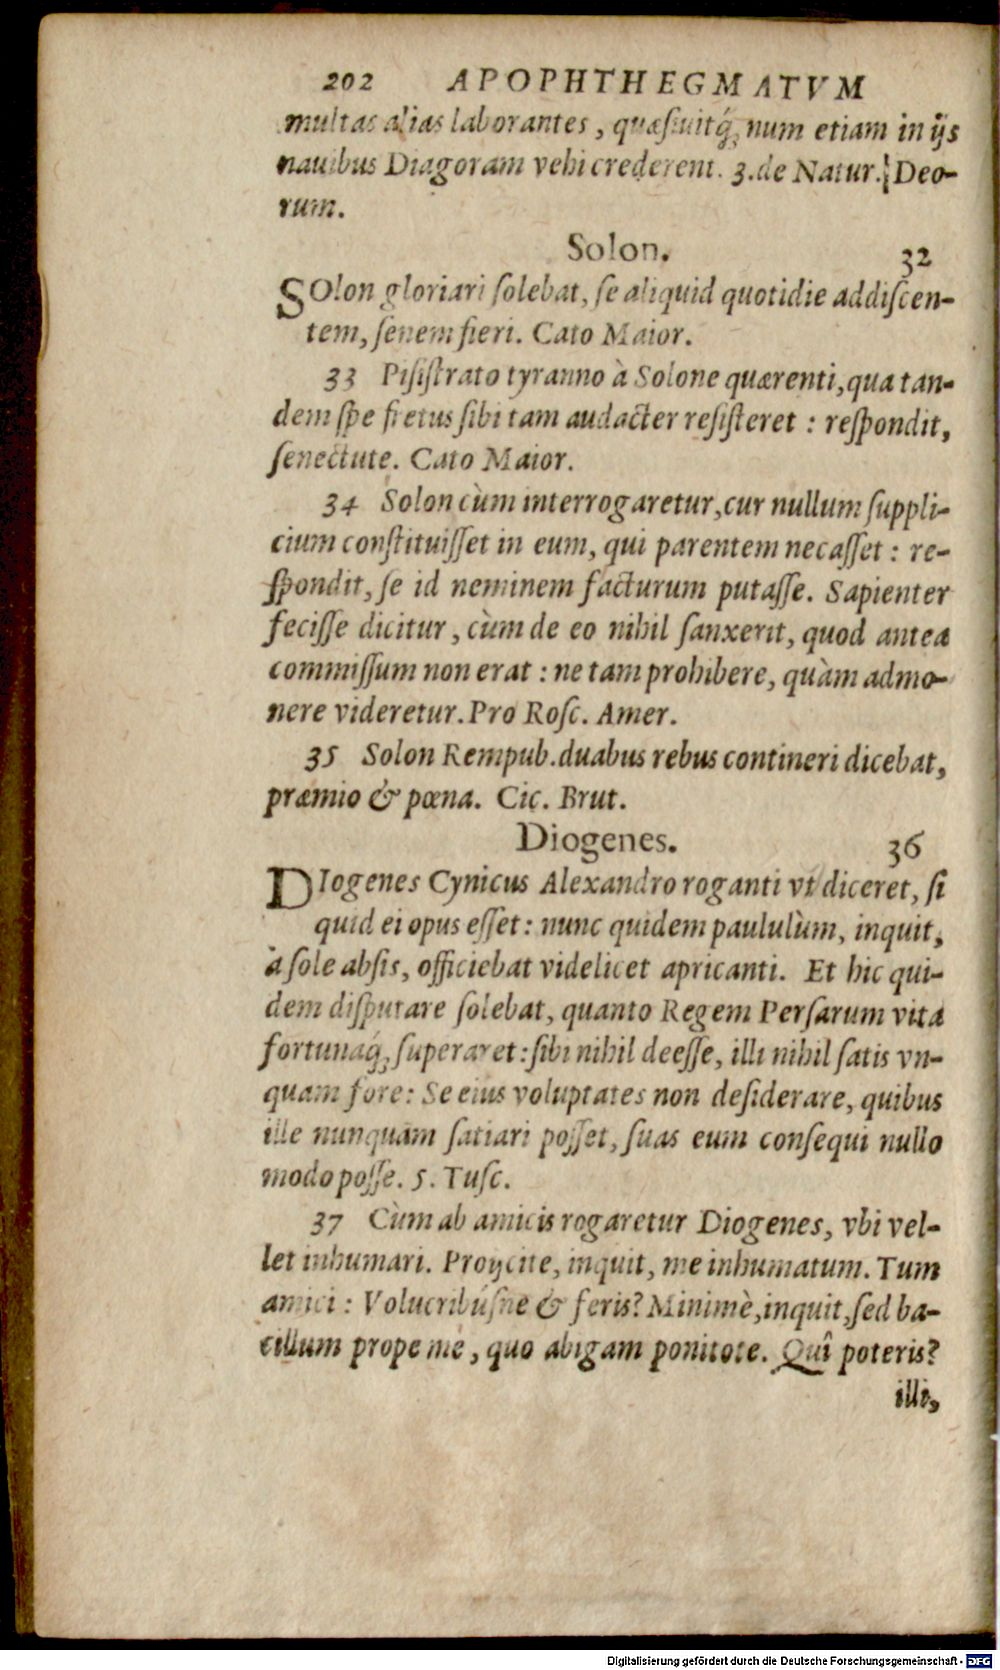 202 APOPHTHEGMATVM
multas alias laborantes, quæsiuitq́; num etiam in ijs
nauibus Diagoram vehi crederent. 3. de Natur. Deo-
rum.
Solon. 32
SOlon gloriari ſolebat, ſe aliquid quotidie addiſcen-
tem, ſenem fieri. Cato Maior.
33 Piſiſtrato tyranno à Solone quærenti, qua tan-
dem ſpe fretus ſibi tam audacter reſiſteret : reſpondit,
ſenectute. Cato Maior.
34 Solon cùm interrogaretur, cur nullum ſuppli-
cium conſtituiſſet in eum, qui parentem necaſſet : re-
ſpondit, ſe id neminem facturum putaſſe. Sapienter
feciſſe dicitur, cùm de eo nihil ſanxerit, quod antea
commiſſum non erat : ne tam prohibere, quàm admo-
nere videretur. Pro Roſc. Amer.
35 Solon Rempub. duabus rebus contineri dicebat,
præmio & pœna. Cic. Brut.
Diogenes. 36
DIogenes Cynicus Alexandro roganti vt diceret, ſi
quid ei opus eſſet : nunc quidem paululùm, inquit,
à ſole abſis, officiebat videlicet apricanti. Et hic qui-
dem diſputare ſolebat, quanto Regem Perſarum vita
fortunaq́; ſuperaret : ſibi nihil deeſſe, illi nihil ſatis vn-
quam fore : Se eius voluptates non deſiderare, quibus
ille nunquam ſatiari poſſet, ſuas eum conſequi nullo
modo poſſe. 5. Tuſc.
37 Cùm ab amicis rogaretur Diogenes, vbi vel-
let inhumari. Proijcite, inquit, me inhumatum. Tum
amici : Volucribúſne & feris? Minimè, inquit, ſed ba-
cillum prope me, quo abigam ponitote. Quî poteris?
illi,
Digitalisierung gefördert durch die Deutsche Forschungsgemeinschaft - DFG